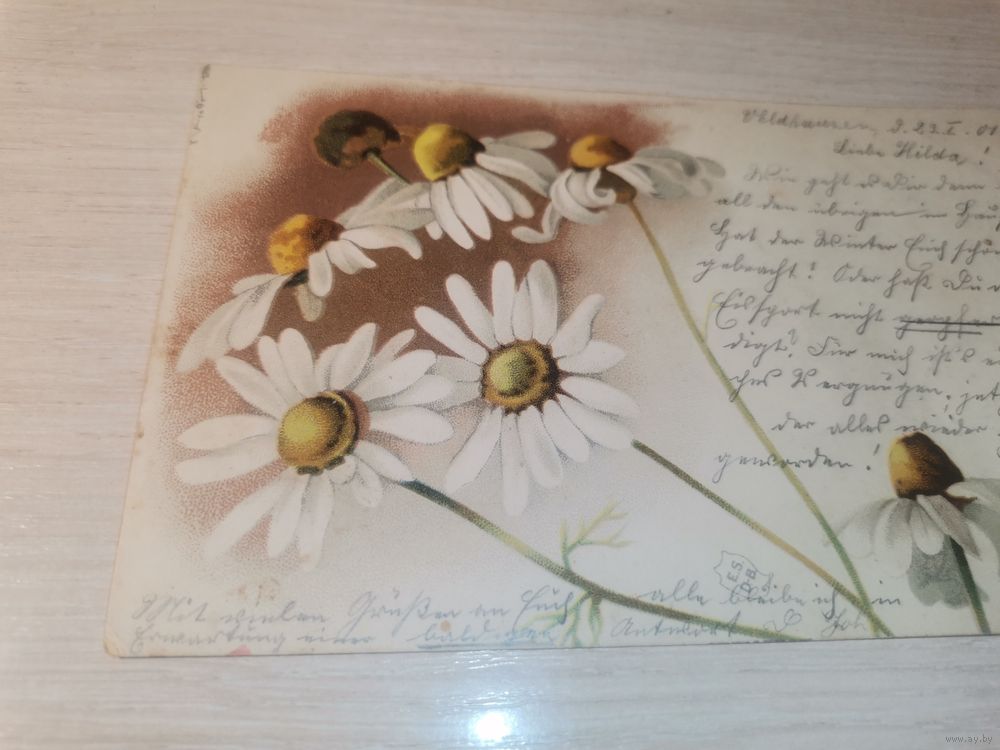 Veldhausen, d. 23. I. 01
Liebe Hilda!
Wie geht es Dir denn
all den übrigen im Hau
Hat der Winter Euch schön
gebracht! Oder hast Du
Eissport nicht
digt? Für mich ist's ei
ches Vergnügen, jet
der alles wieder
geworden!
E.S.
D.B.
Mit vielen Grüßen an Euch alle bleibe ich in
Erwartung einer baldigen Antwort D
www.ay.by